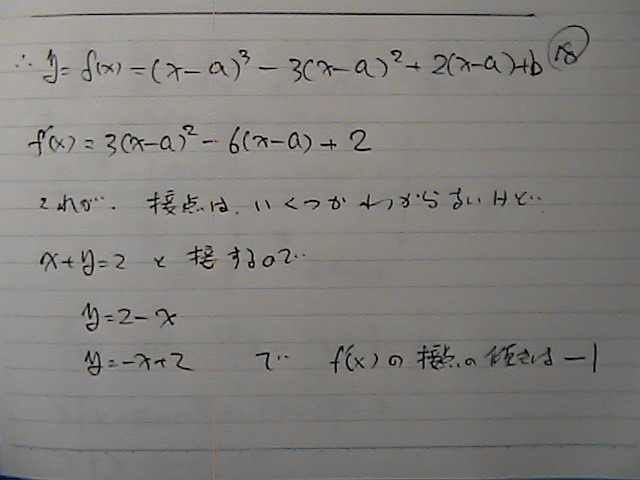 ∴ y = f(x) = (x-a)³ - 3(x-a)² + 2(x-a)+b ⑱
f'(x) = 3(x-a)² - 6(x-a) + 2
これが、接点は、いくつかわからないけど…
x+y=2 と接するので
y=2-x
y=-x+2 で f'(x)の接点の傾きは -1